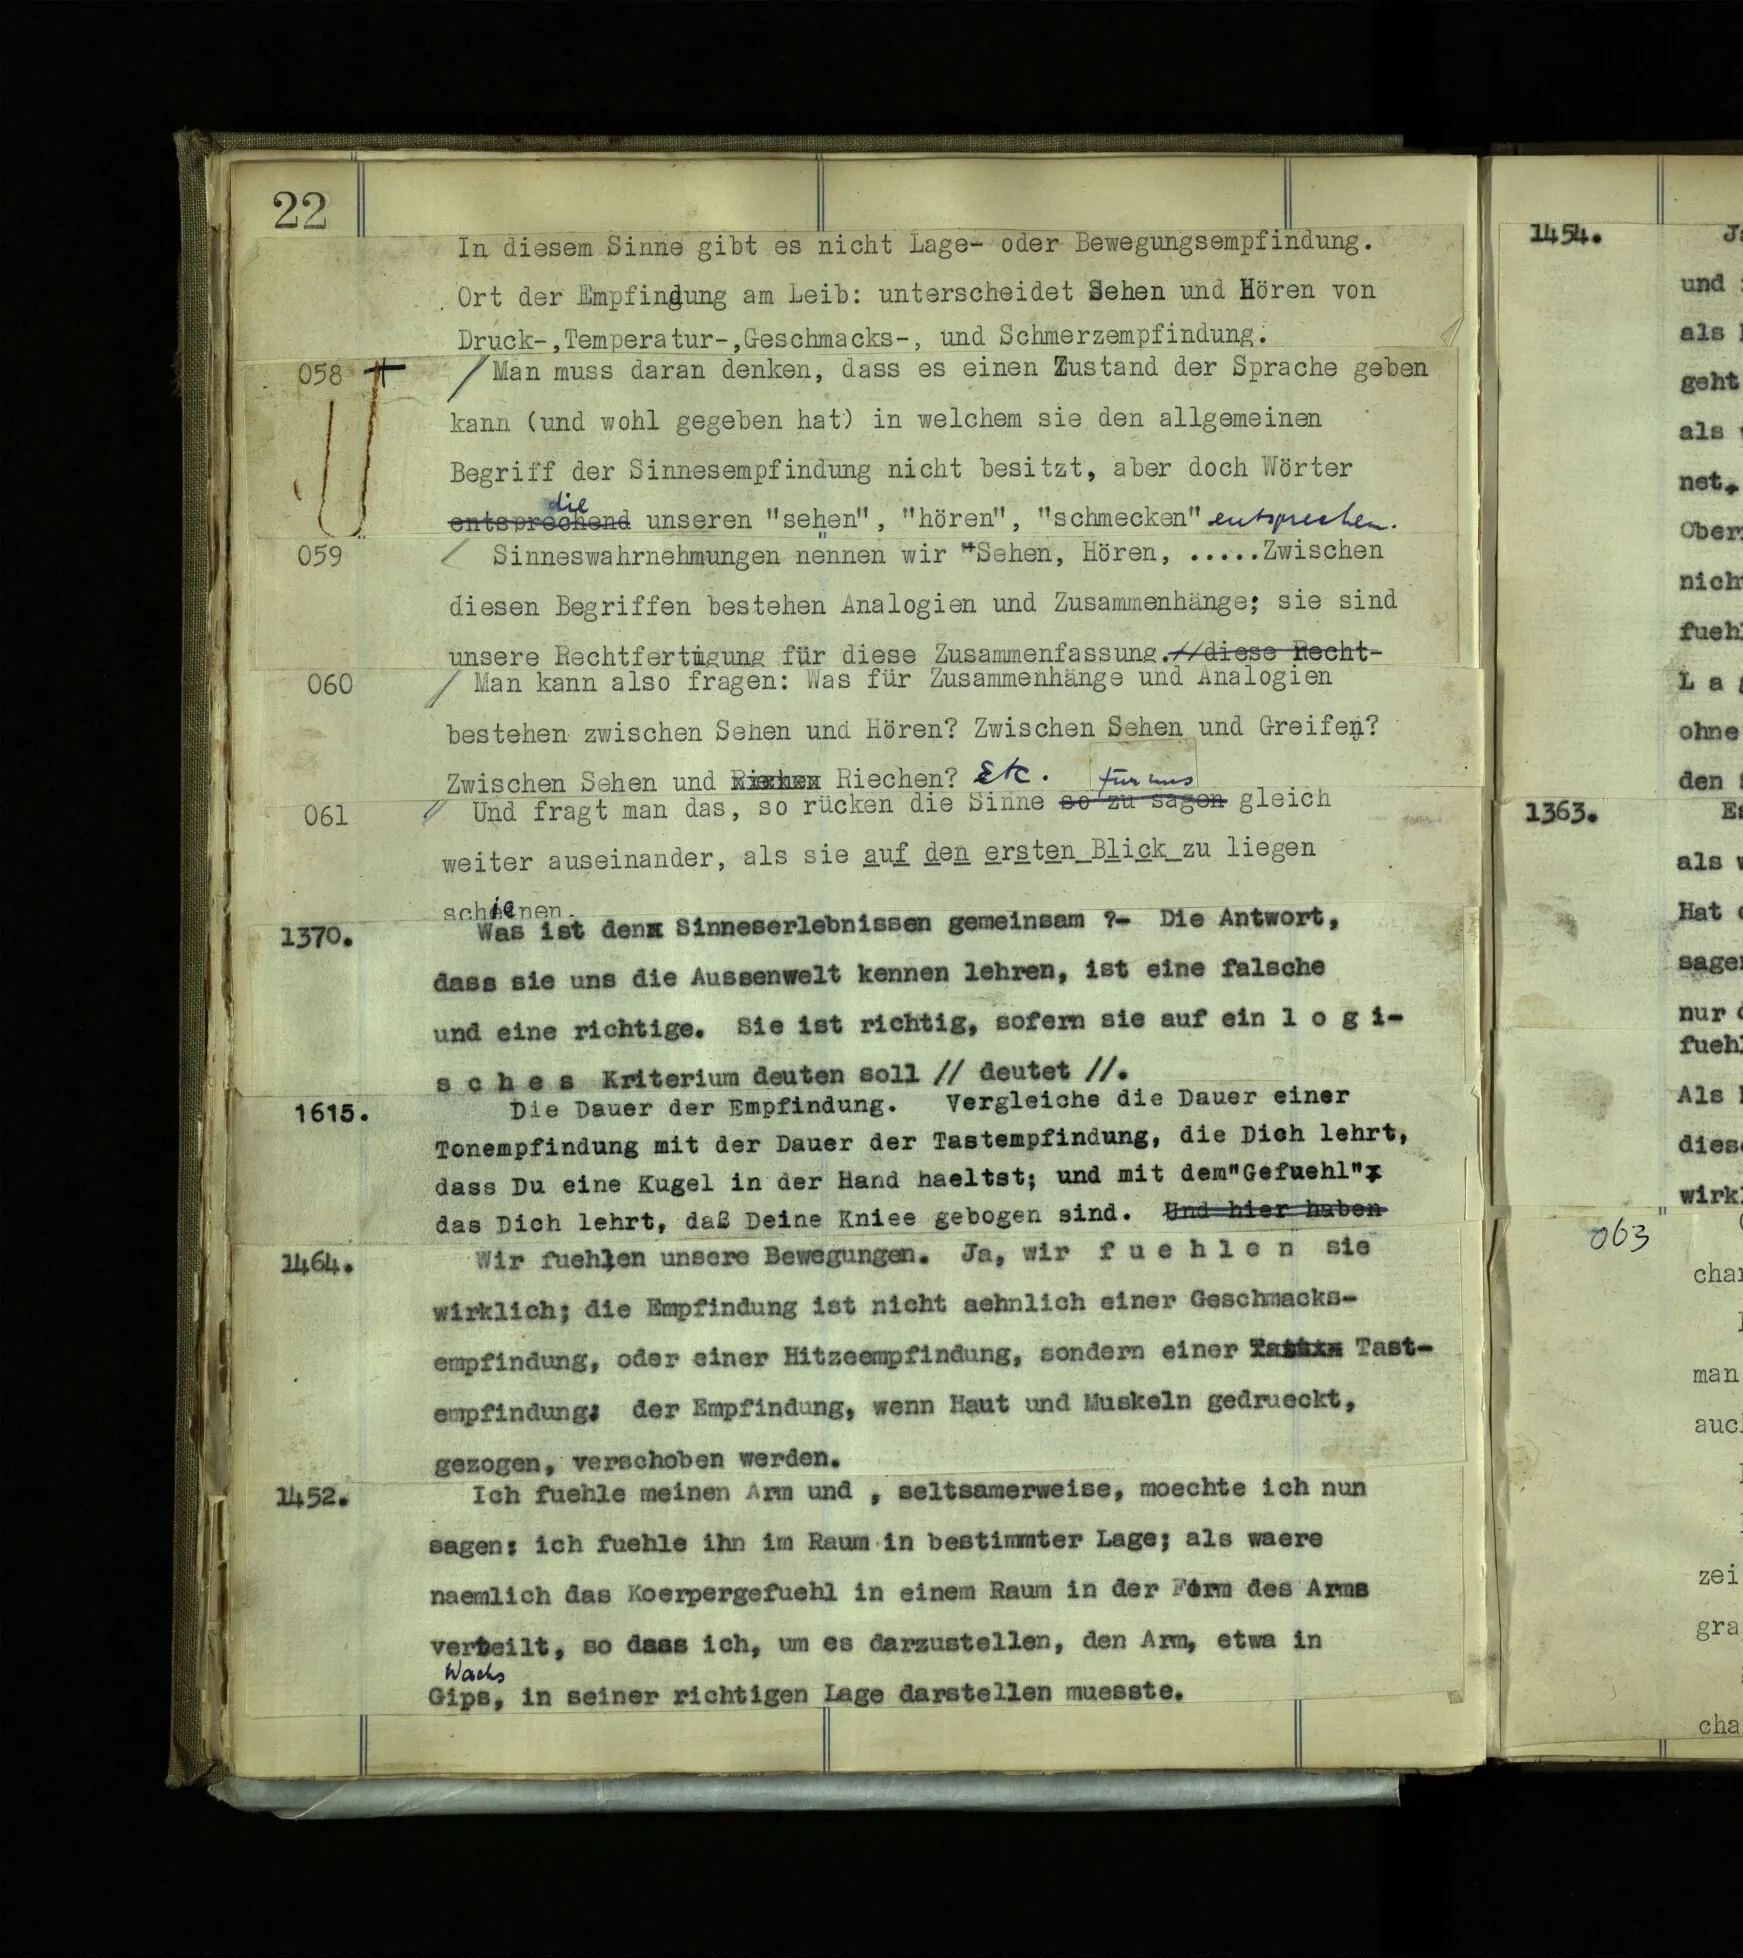 22
In diesem Sinne gibt es nicht Lage- oder Bewegungsempfindung.
Ort der Empfindung am Leib: unterscheidet Sehen und Hören von
Druck-,Temperatur-,Geschmacks-, und Schmerzempfindung.
058 / Man muss daran denken, dass es einen Zustand der Sprache geben
kann (und wohl gegeben hat) in welchem sie den allgemeinen
Begriff der Sinnesempfindung nicht besitzt, aber doch Wörter
die
entsprechend unseren "sehen", "hören", "schmecken" entsprechen.
059 / Sinneswahrnehmungen nennen wir "Sehen, Hören, .....Zwischen
diesen Begriffen bestehen Analogien und Zusammenhänge; sie sind
unsere Rechtfertigung für diese Zusammenfassung.//diese Recht-
060 / Man kann also fragen: Was für Zusammenhänge und Analogien
bestehen zwischen Sehen und Hören? Zwischen Sehen und Greifen?
Zwischen Sehen und Riechen? Etc.
für uns
061 // Und fragt man das, so rücken die Sinne so zu sagen gleich
weiter auseinander, als sie auf den ersten Blick zu liegen
schienen.
1370. Was ist den Sinneserlebnissen gemeinsam ?- Die Antwort,
dass sie uns die Aussenwelt kennen lehren, ist eine falsche
und eine richtige. Sie ist richtig, sofern sie auf ein l o g i-
s c h e s Kriterium deuten soll // deutet //.
1615. Die Dauer der Empfindung. Vergleiche die Dauer einer
Tonempfindung mit der Dauer der Tastempfindung, die Dich lehrt,
dass Du eine Kugel in der Hand haeltst; und mit dem"Gefuehl"
das Dich lehrt, daß Deine Kniee gebogen sind. Und hier haben
1464. Wir fuehlen unsere Bewegungen. Ja, wir f u e h l e n sie
wirklich; die Empfindung ist nicht aehnlich einer Geschmacks-
empfindung, oder einer Hitzeempfindung, sondern einer Tast-
empfindung: der Empfindung, wenn Haut und Muskeln gedrueckt,
gezogen, verschoben werden.
1452. Ich fuehle meinen Arm und , seltsamerweise, moechte ich nun
sagen: ich fuehle ihn im Raum in bestimmter Lage; als waere
naemlich das Koerpergefuehl in einem Raum in der Form des Arms
verteilt, so dass ich, um es darzustellen, den Arm, etwa in
Wachs
Gips, in seiner richtigen Lage darstellen muesste.
1454.
und
als
geht
als
net.
Ober
nich
fueh
L a
ohne
den
1363. Es
als w
Hat
sage
nur
fueh
Als
dies
wirk
063
cha
man
auc
zei
gra
cha